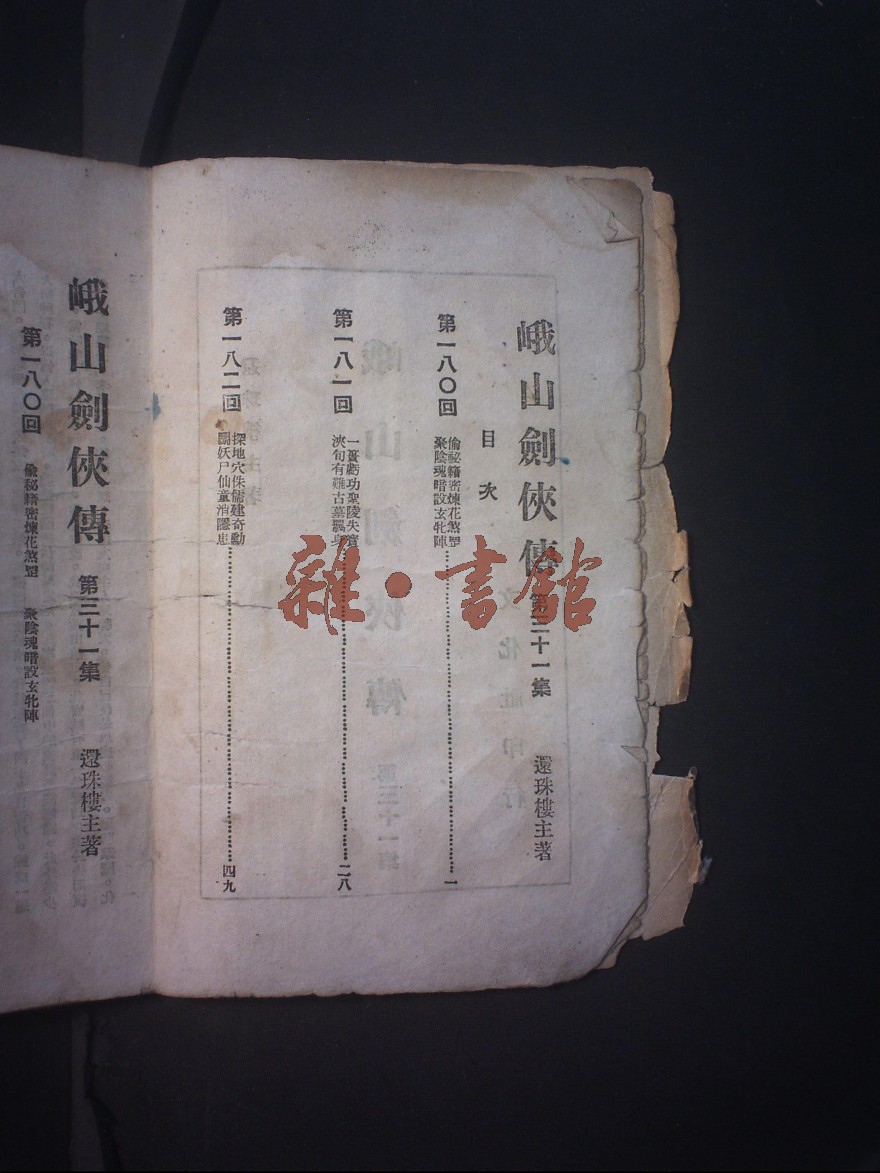 峨山劍俠傳 第三十一集 還珠樓主著
目次
第一八〇回
偷秘籍密煉花煞罡
聚陰魂暗設玄牝陣
一
第一八一回
一簣虧功聖陵失寶
浹旬有難古墓羈身
二八
第一八二回
探地穴侏儒建奇勳
鬭妖尸仙童消隱患
四九
峨山劍俠傳 第三十一集 還珠樓主著
第一八〇回 偷秘籍密煉花煞罡 聚陰魂暗設玄牝陣
雜·書館